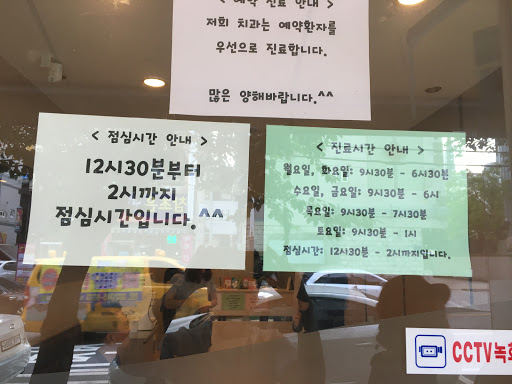 < 예약 진료 안내 >
저희 치과는 예약환자를
우선으로 진료합니다.
많은 양해바랍니다.^^
< 점심시간 안내 >
12시30분부터
2시까지
점심시간입니다.^^
< 진료시간 안내 >
월요일, 화요일: 9시30분 - 6시30분
수요일, 금요일: 9시30분 - 6시
목요일: 9시30분 - 7시30분
토요일: 9시30분 - 1시
점심시간: 12시30분 - 2시까지입니다.
CCTV녹화